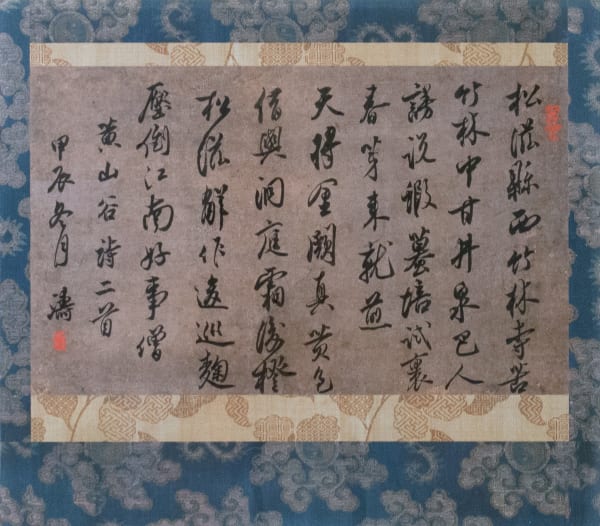 松滋縣西竹林寺苦
竹林中甘井泉巴人
謾說蝦蟇培試裹
春芽來就煎
天將金闕真黃色
借與洞庭霜後橙
松滋解作逡巡麴
壓倒江南好事僧
黃山谷詩二首
甲辰冬月 濤